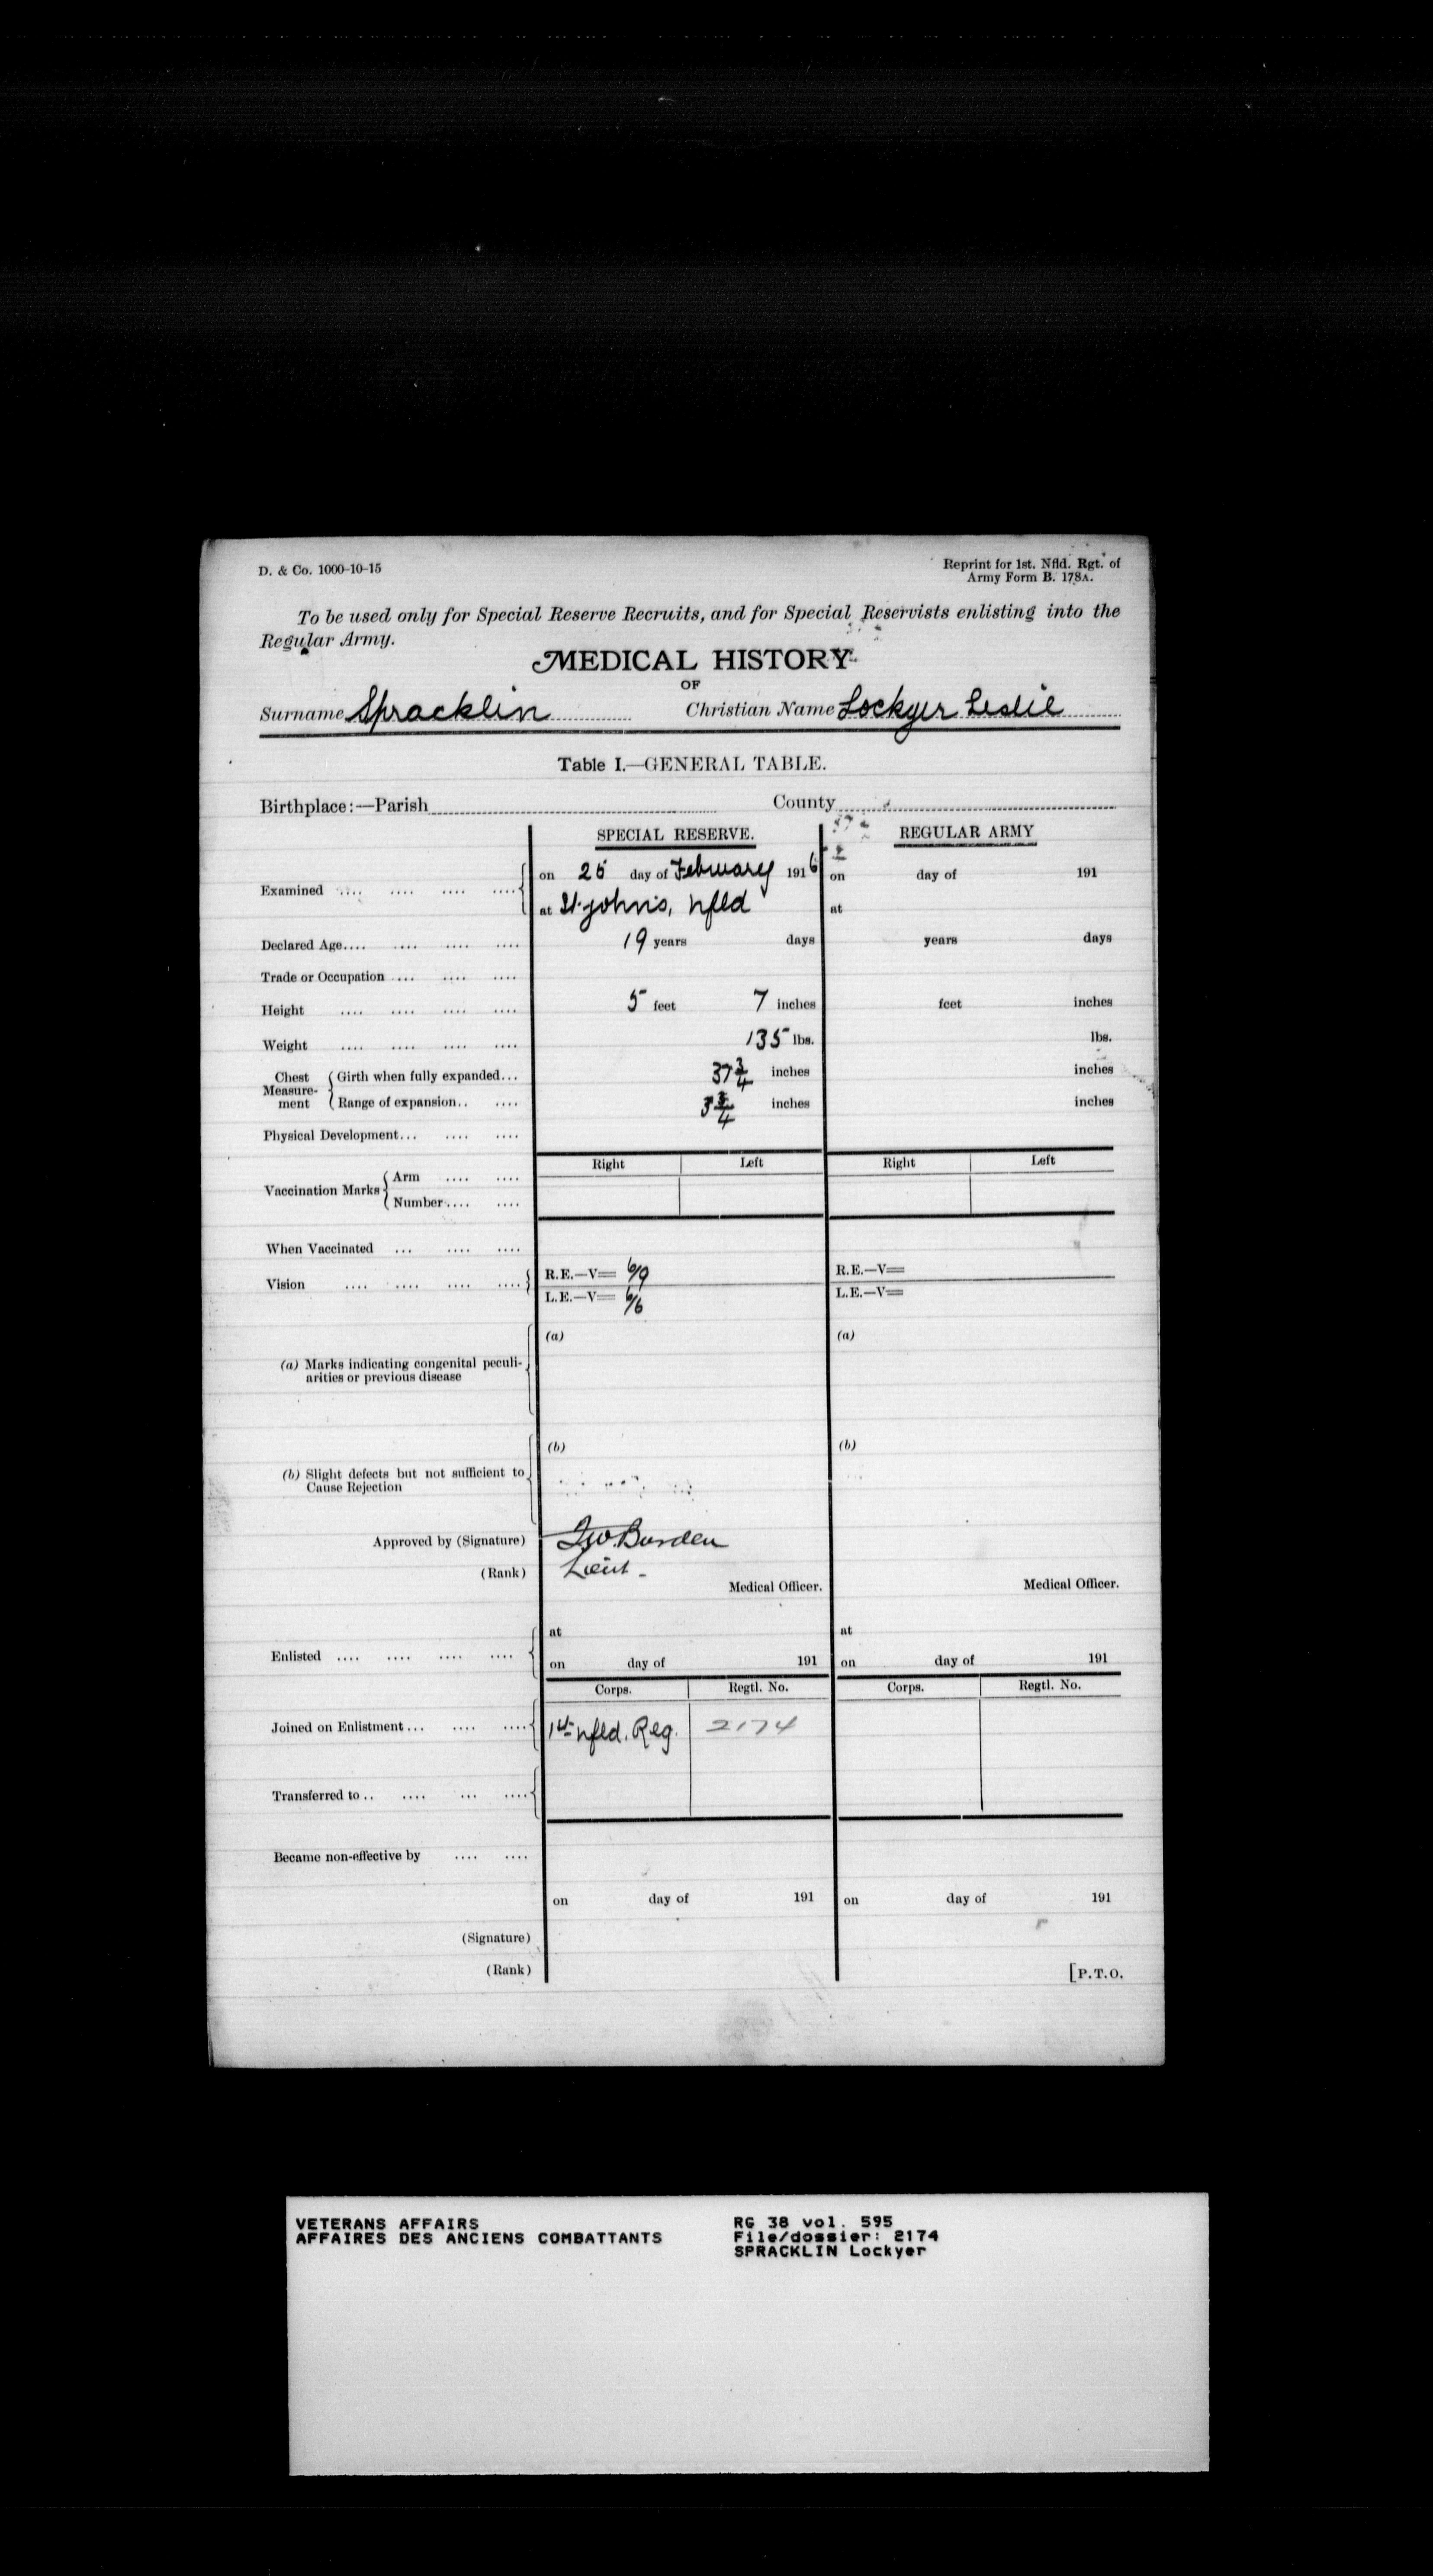 D. & Co. 1000-10-15
Reprint for 1st. Nfld. Rgt. of
Army Form B. 178A.
To be used only for Special Reserve Recruits, and for Special Reservists enlisting into the
Regular Army.
MEDICAL HISTORY
OF
Surname Spracklin Christian Name Lockyer Leslie
Table I.—GENERAL TABLE.
Birthplace:—Parish County
SPECIAL RESERVE. REGULAR ARMY
Examined .... .... .... .... on 25 day of February 1916 on day of 191
at St. John's, Nfld at
Declared Age.... .... .... .... 19 years days years days
Trade or Occupation .... .... ....
Height .... .... .... .... 5 feet 7 inches feet inches
Weight .... .... .... .... 135 lbs. lbs.
Chest Measurement Girth when fully expanded... 37 3/4 inches inches
Range of expansion.. .... 3 3/4 inches inches
Physical Development... .... ....
Right Left Right Left
Vaccination Marks Arm .... ....
Number.... ....
When Vaccinated ... .... ....
Vision .... .... .... .... R.E.—V= 6/9 R.E.—V=
L.E.—V= 6/6 L.E.—V=
(a) (a)
(a) Marks indicating congenital peculi-
arities or previous disease
(b) (b)
(b) Slight defects but not sufficient to
Cause Rejection
Approved by (Signature) Burden
(Rank) Lieut-
Medical Officer. Medical Officer.
at at
Enlisted .... .... .... ....
on day of 191 on day of 191
Corps. Regtl. No. Corps. Regtl. No.
Joined on Enlistment... .... .... 1st Nfld. Reg. 2174
Transferred to .. .... ... ....
Became non-effective by .... ....
on day of 191 on day of 191
(Signature)
(Rank)
[P.T.O.
VETERANS AFFAIRS RG 38 vol. 595
AFFAIRES DES ANCIENS COMBATTANTS File/dossier: 2174
SPRACKLIN Lockyer